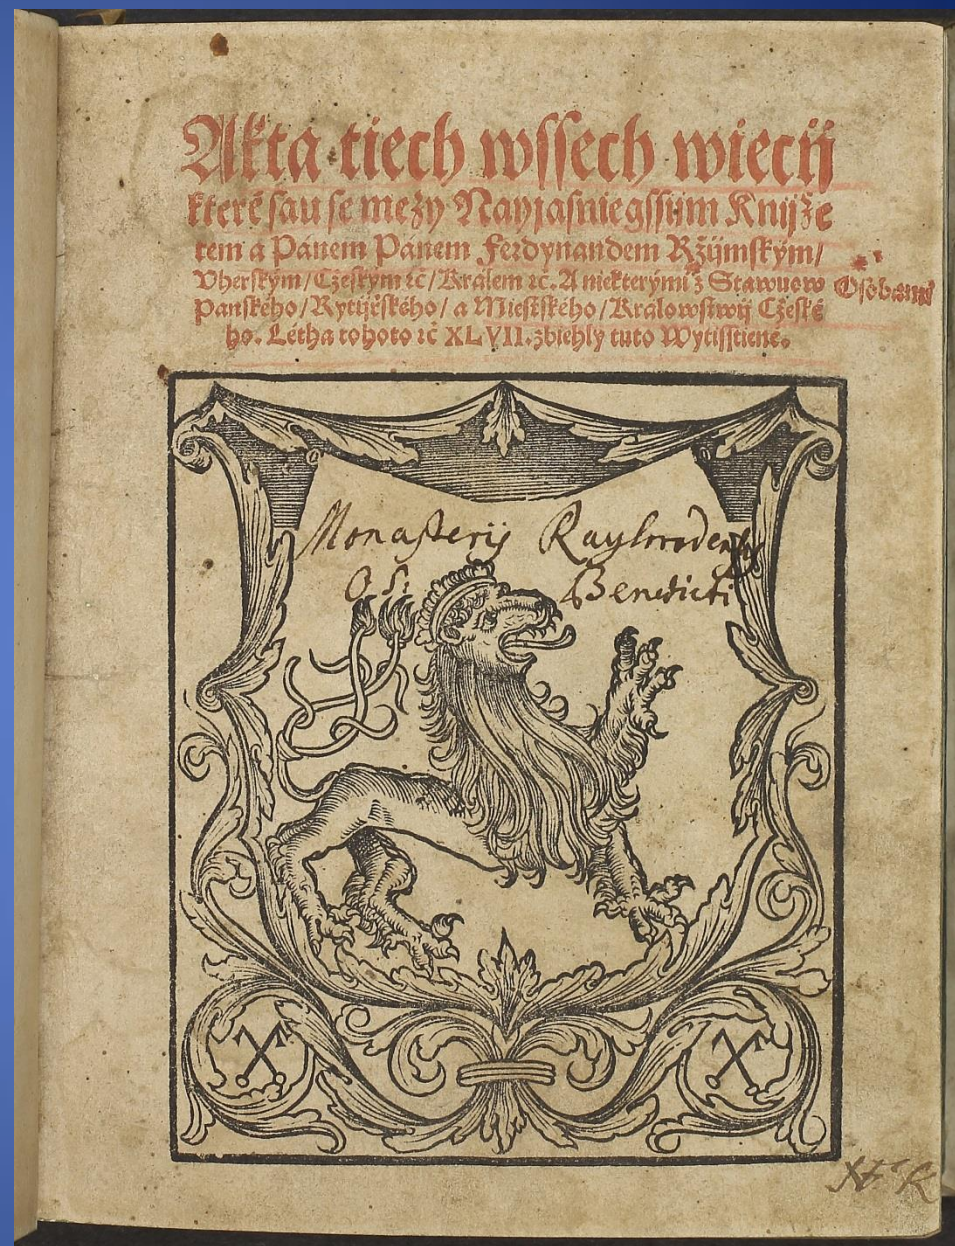 Akta tiech wssech wiecij
kteréſau ſe mezy Nayjaſniegſſijm Knijže
tem a Pánem Pánem Ferdynandem Ržijmſkým/
Vherſkým/Czeſkým ꝛč/Králem ꝛč. A niekterými z Stawuow Oſobami
Panſkého/Rytijřſkého/a Mieſtſkého/Králowſtwij Czeſké
ho. Létha tohoto ꝛč XLVII. zbiehly tuto Wytiſſtiené.
Monasterij Rayhradensis
O. S. Benedicti